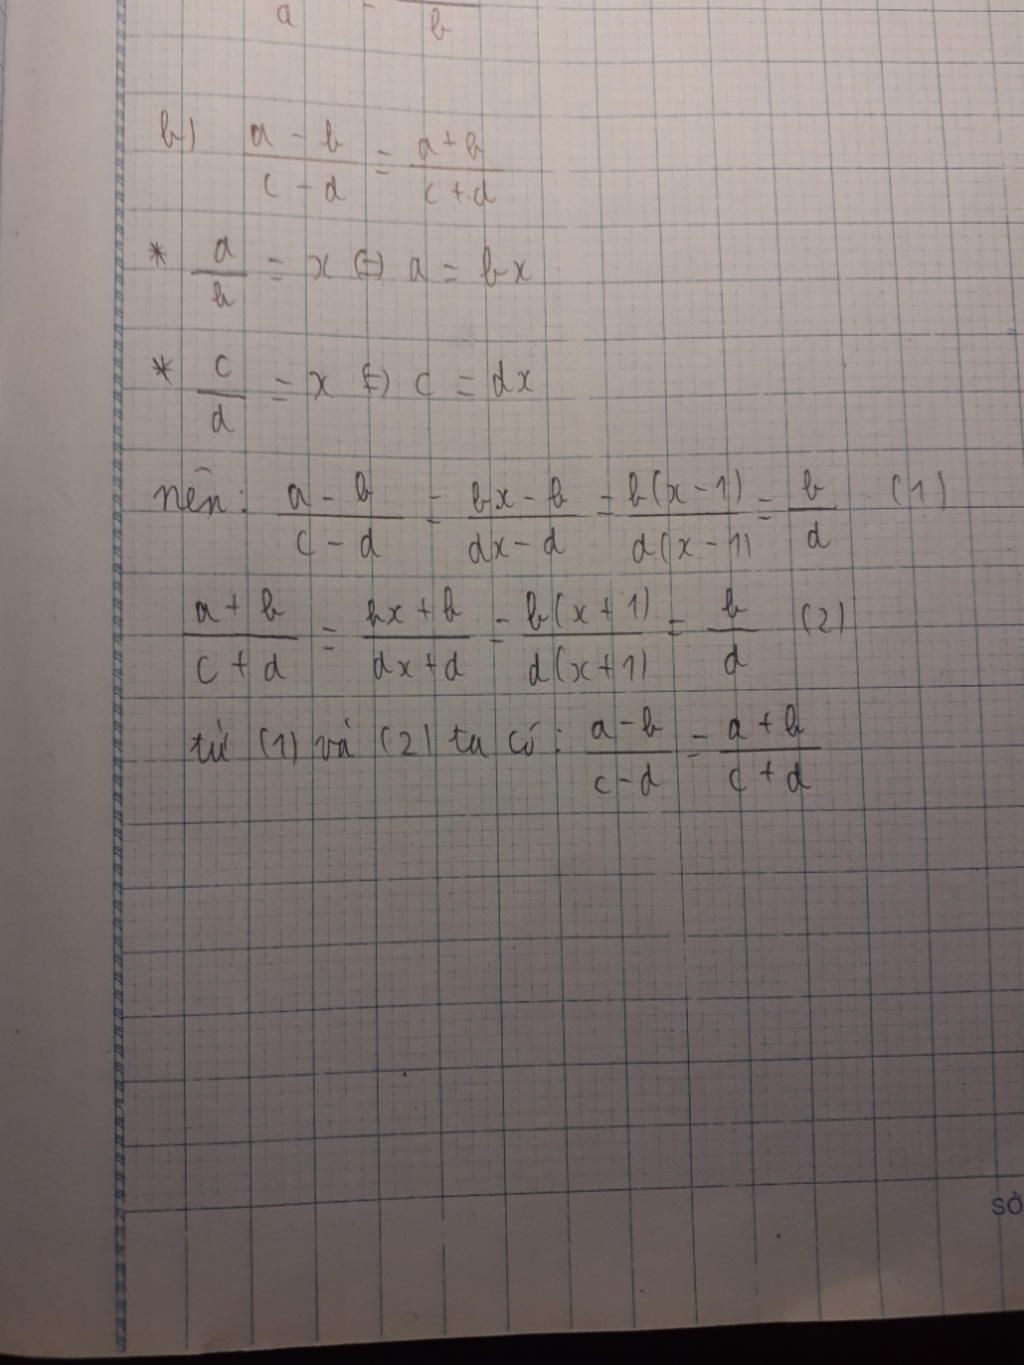 a = b
b) (a - b)/(c - d) = (a + b)/(c + d)
* a/b = x ⇔ a = bx
* c/d = x ⇔ c = dx
nên: (a - b)/(c - d) = (bx - b)/(dx - d) = b(x - 1)/d(x - 1) = b/d (1)
(a + b)/(c + d) = (bx + b)/(dx + d) = b(x + 1)/d(x + 1) = b/d (2)
từ (1) và (2) ta có: (a - b)/(c - d) = (a + b)/(c + d)